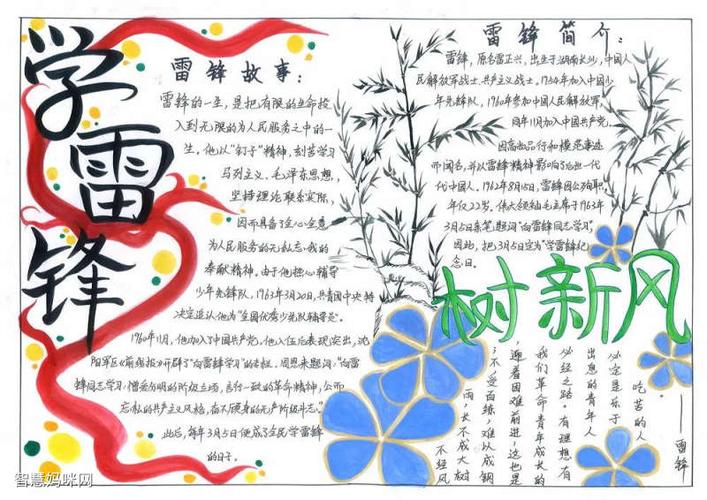 学雷锋
雷锋故事:
雷锋的一生，是把有限的生命投
入到无限的为人民服务之中的一
生。他以"钉子"精神，刻苦学习
马列主义、毛泽东思想，
坚持理论联系实际，
因而具备了全心全意
为人民服务的无私忘我的
奉献精神。由于他热心辅导
少年先锋队，1963年3月20日，共青团中央特
决定追认他为"全国优秀少先队辅导员。
1960年11月，他加入中国共产党。他入伍后表现突出，沈
阳军区《前线报》开辟了"向雷锋学习"的专栏。周恩来题词："向雷
锋同志学习，憎爱分明的阶级立场，言行一致的革命精神，公而
忘私的共产主义风格，奋不顾身的无产阶级斗志。"
此后，每年3月5日便成了全民学雷锋
的日子。
雷锋简介:
雷锋，原名雷正兴，出生于湖南长沙，中国人
民解放军战士，共产主义战士，1954年加入中国少
年先锋队，1960年参加中国人民解放军，
同年11月加入中国共产党。
因高尚品行和模范事迹
而闻名，并以雷锋精神影响了后世一代
代中国人。1962年8月15日，雷锋因公殉职，
年仅22岁。伟大领袖毛主席于1963年
3月5日亲笔题词"向雷锋同志学习"。
因此，把3月5日定为"学雷锋纪
念日。
树新风
吃苦的人
必定是乐于
出息的青年人
必经之路。有理想有
我们革命青年成长的
迎着困难前进，这也是
不受百练，难以成钢
雨，长不成大树
不经风
——雷锋
智慧妈咪网